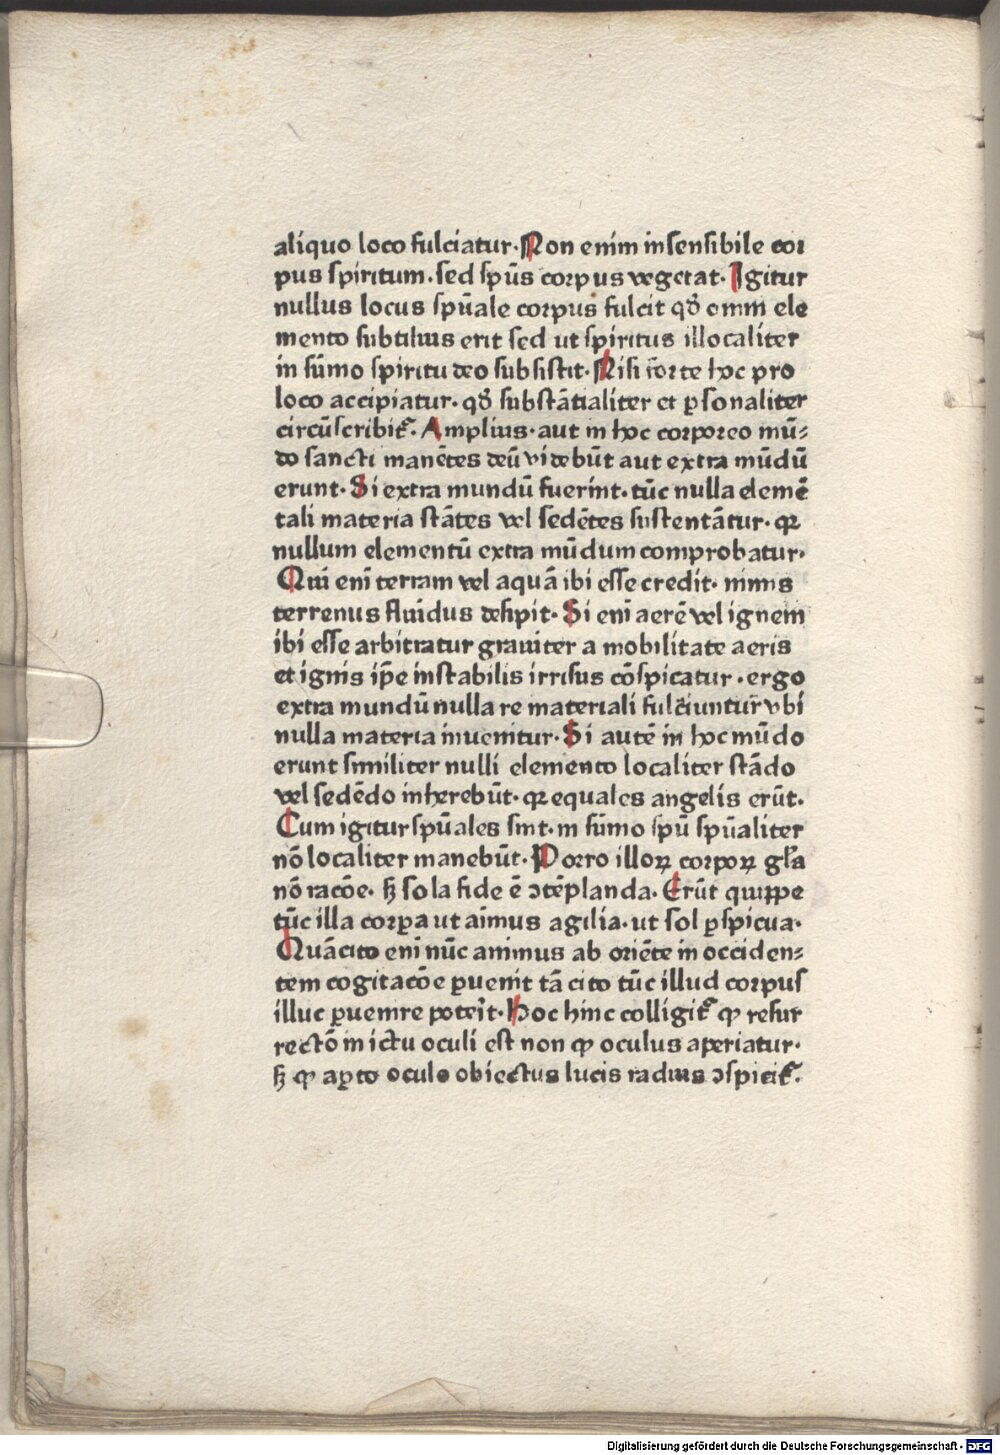 aliquo loco fulciatur. Non enim insensibile cor
pus spiritum. sed spūs corpus vegetat. Igitur
nullus locus spūale corpus fulcit qđ omni ele
mento subtilius erit sed ut spiritus illocaliter
in sūmo spiritu deo subsistit. Nisi forte hoc pro
loco accipiatur. qđ substātialiter et ꝑsonaliter
circūscribit᷑. Amplius. aut in hoc corporeo mū⸗
do sancti manētes deū videbūt aut extra mūdū
erunt. Si extra mundū fuerint. tūc nulla elemē
tali materia stātes vel sedētes sustentātur. qꝛ
nullum elementū extra mūdum comprobatur.
Qui enī terram vel aquā ibi esse credit. nimis
terrenus fluidus desipit. Si enī aerē vel ignem
ibi esse arbitratur graviter a mobilitate aeris
et ignis ip̄e instabilis irrisus cōspicatur. ergo
extra mundū nulla re materiali fulciuntur vbi
nulla materia invenitur. Si autē in hoc mūdo
erunt similiter nulli elemento localiter stādo
vel sedēdo inherebūt. qꝛ equales angelis erūt.
Cum igitur spūales sint. in sūmo spū spūaliter
nō localiter manebūt. Porro illoꝝ corpoꝝ gl̄a
nō racōe. ꜩ sola fide ē ↄtēplanda. Erūt quippe
tūc illa corꝑa ut aīmus agilia. ut sol ꝑspicua.
Quācito enī nūc animus ab oriēte in occiden⸗
tem cogitacōe ꝑuenit tā cito tūc illud corpus
illuc ꝑuenire poterit. Hoc hinc colligit᷑ ꝙ resur
rectō in ictu oculi est non ꝙ oculus aperiatur.
ꜩ ꝙ aꝑto oculo obiectus lucis radius ↄspicit᷑.
Digitalisierung gefördert durch die Deutsche Forschungsgemeinschaft - DFG